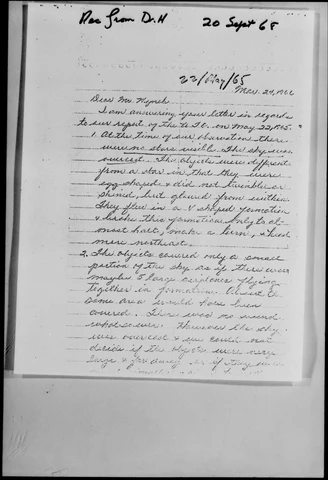 Rec from Dr. H 20 Sept 65
22/May/65
Mar. 29, 1966
Dear Mr. Hynek
I am answering your letter in regards
to our report of the U.F.O. on May 22, 1965.
1. At the time of our observations there
were no stars visible. The sky was
overcast. The objects were different
from a star in that they were
egg shaped & did not twinkle or
shined, but glowed from within
They flew in a V shaped formation
& broke this formation only to al-
most halt, make a turn, & head
more northeast.
2. The objects covered only a small
portion of the sky. As if there were
maybe 5 large airplanes flying
together in formation. About the
same area would have been
covered. There was no sound
whatsoever. However the sky
was overcast & we could not
decide if the objects were very
large & far away or if they were